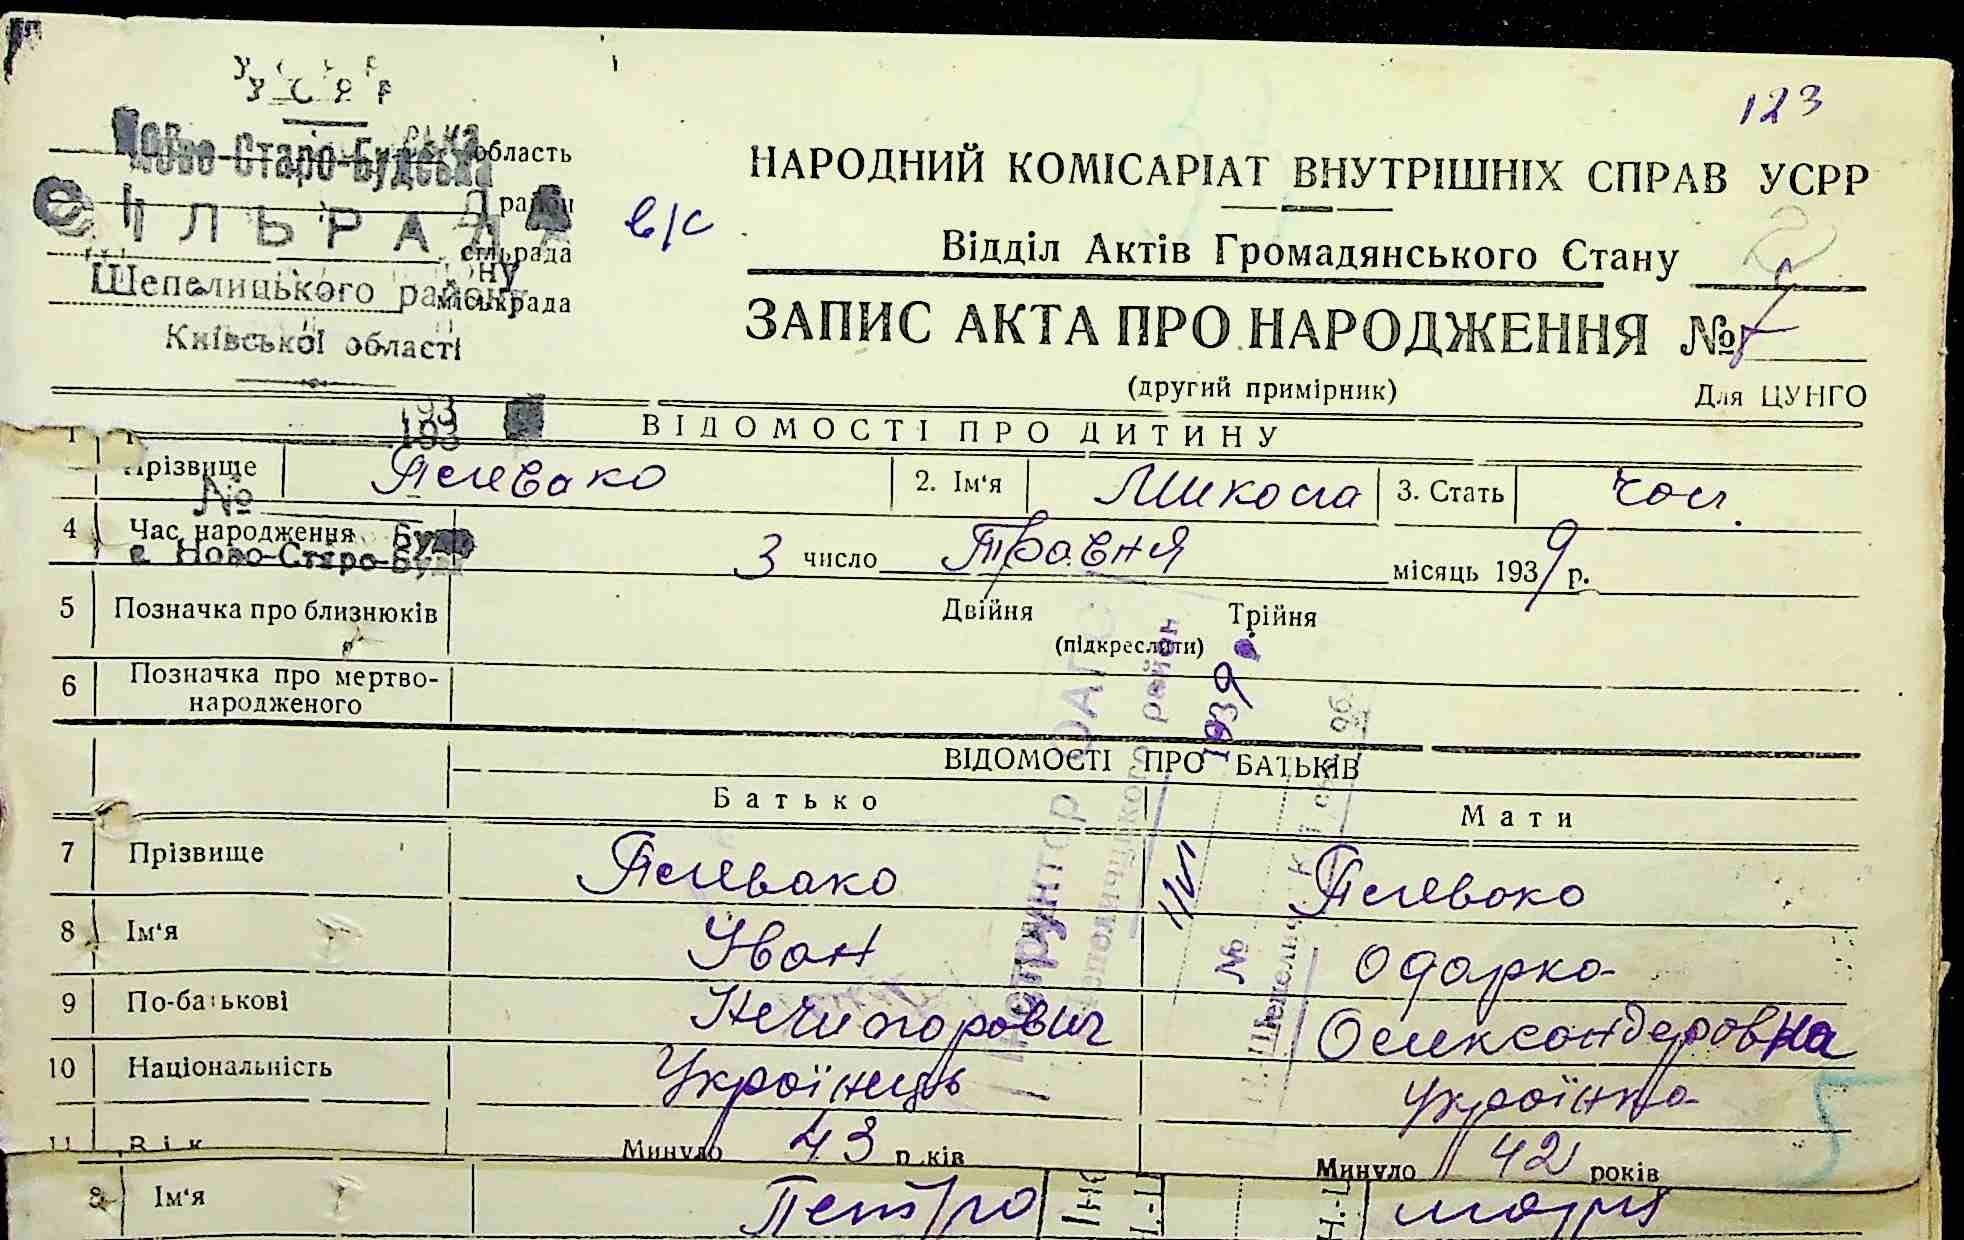 123
У С Р Р
Ново-Старо-Будська
область
СІЛЬРАДА
район
сільрада
Шепелицького району
міськрада
Київської області
в/с
НАРОДНИЙ КОМІСАРІАТ ВНУТРІШНІХ СПРАВ УСРР
Відділ Актів Громадянського Стану
ЗАПИС АКТА ПРО НАРОДЖЕННЯ № 7
(другий примірник) Для ЦУНГО
193
ВІДОМОСТІ ПРО ДИТИНУ
1 Прізвище Пелевако 2. Ім‘я Микола 3. Стать чол.
№
4 Час народження 3 число Травня місяць 1939 р.
с. Ново-Старо-Буда
5 Позначка про близнюків Двійня Трійня
(підкреслити)
6 Позначка про мертво-
народженого
ВІДОМОСТІ ПРО БАТЬКІВ
Батько Мати
7 Прізвище Пелевако Пелевако
8 Ім‘я Іван Одарка
9 По-батькові Нечипорович Олександеровна
10 Національність Українець Українка
11 Вік Минуло 43 років Минуло 42 років
8 Ім‘я Петро Марія
1939 р
№
5